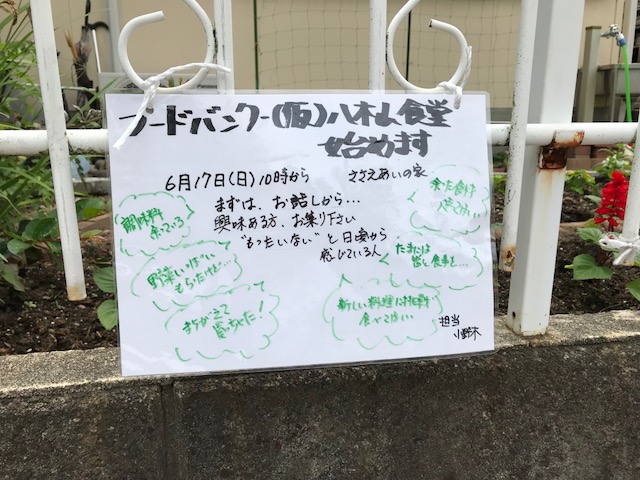 フードバンク(仮)八木山食堂
始めます
6月17日(日)10時から ささえあいの家
まずは、お話しから…
興味ある方、お集り下さい
"もったいない"と日頃から
感じている人
調味料
余っている
野菜いっぱい
もらたけど…
まちがえて
買っちゃった!
たまには
皆と食事を…
新しい料理に挑戦
食べてほしい
担当
小野木